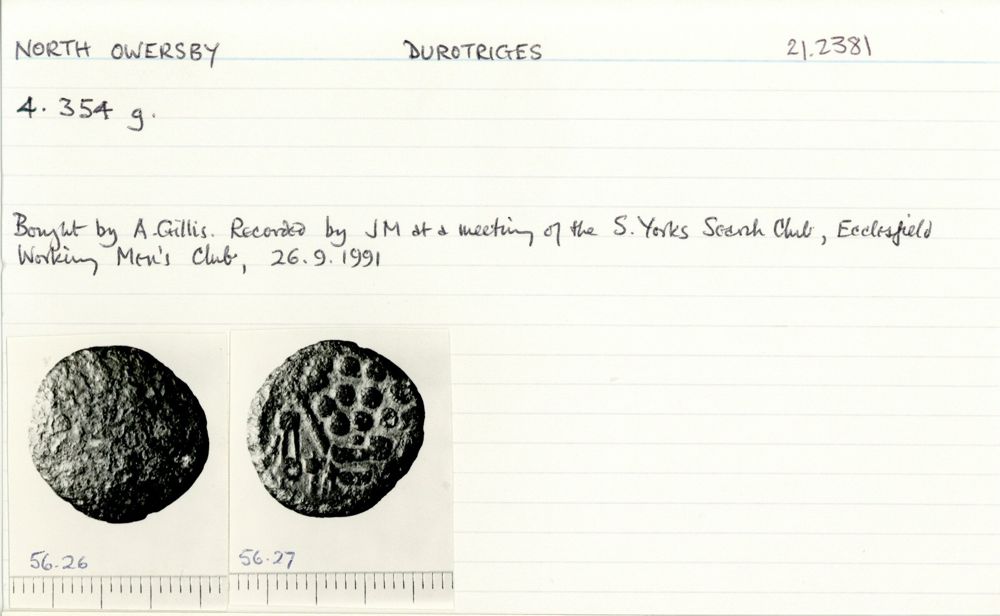 NORTH OWERSBY DUROTRIGES 21.2381
4.354 g.
Bought by A.Gillis. Recorded by JM at a meeting of the S. Yorks Search Club, Ecclesfield
Working Men's Club, 26.9.1991
56.26 56.27